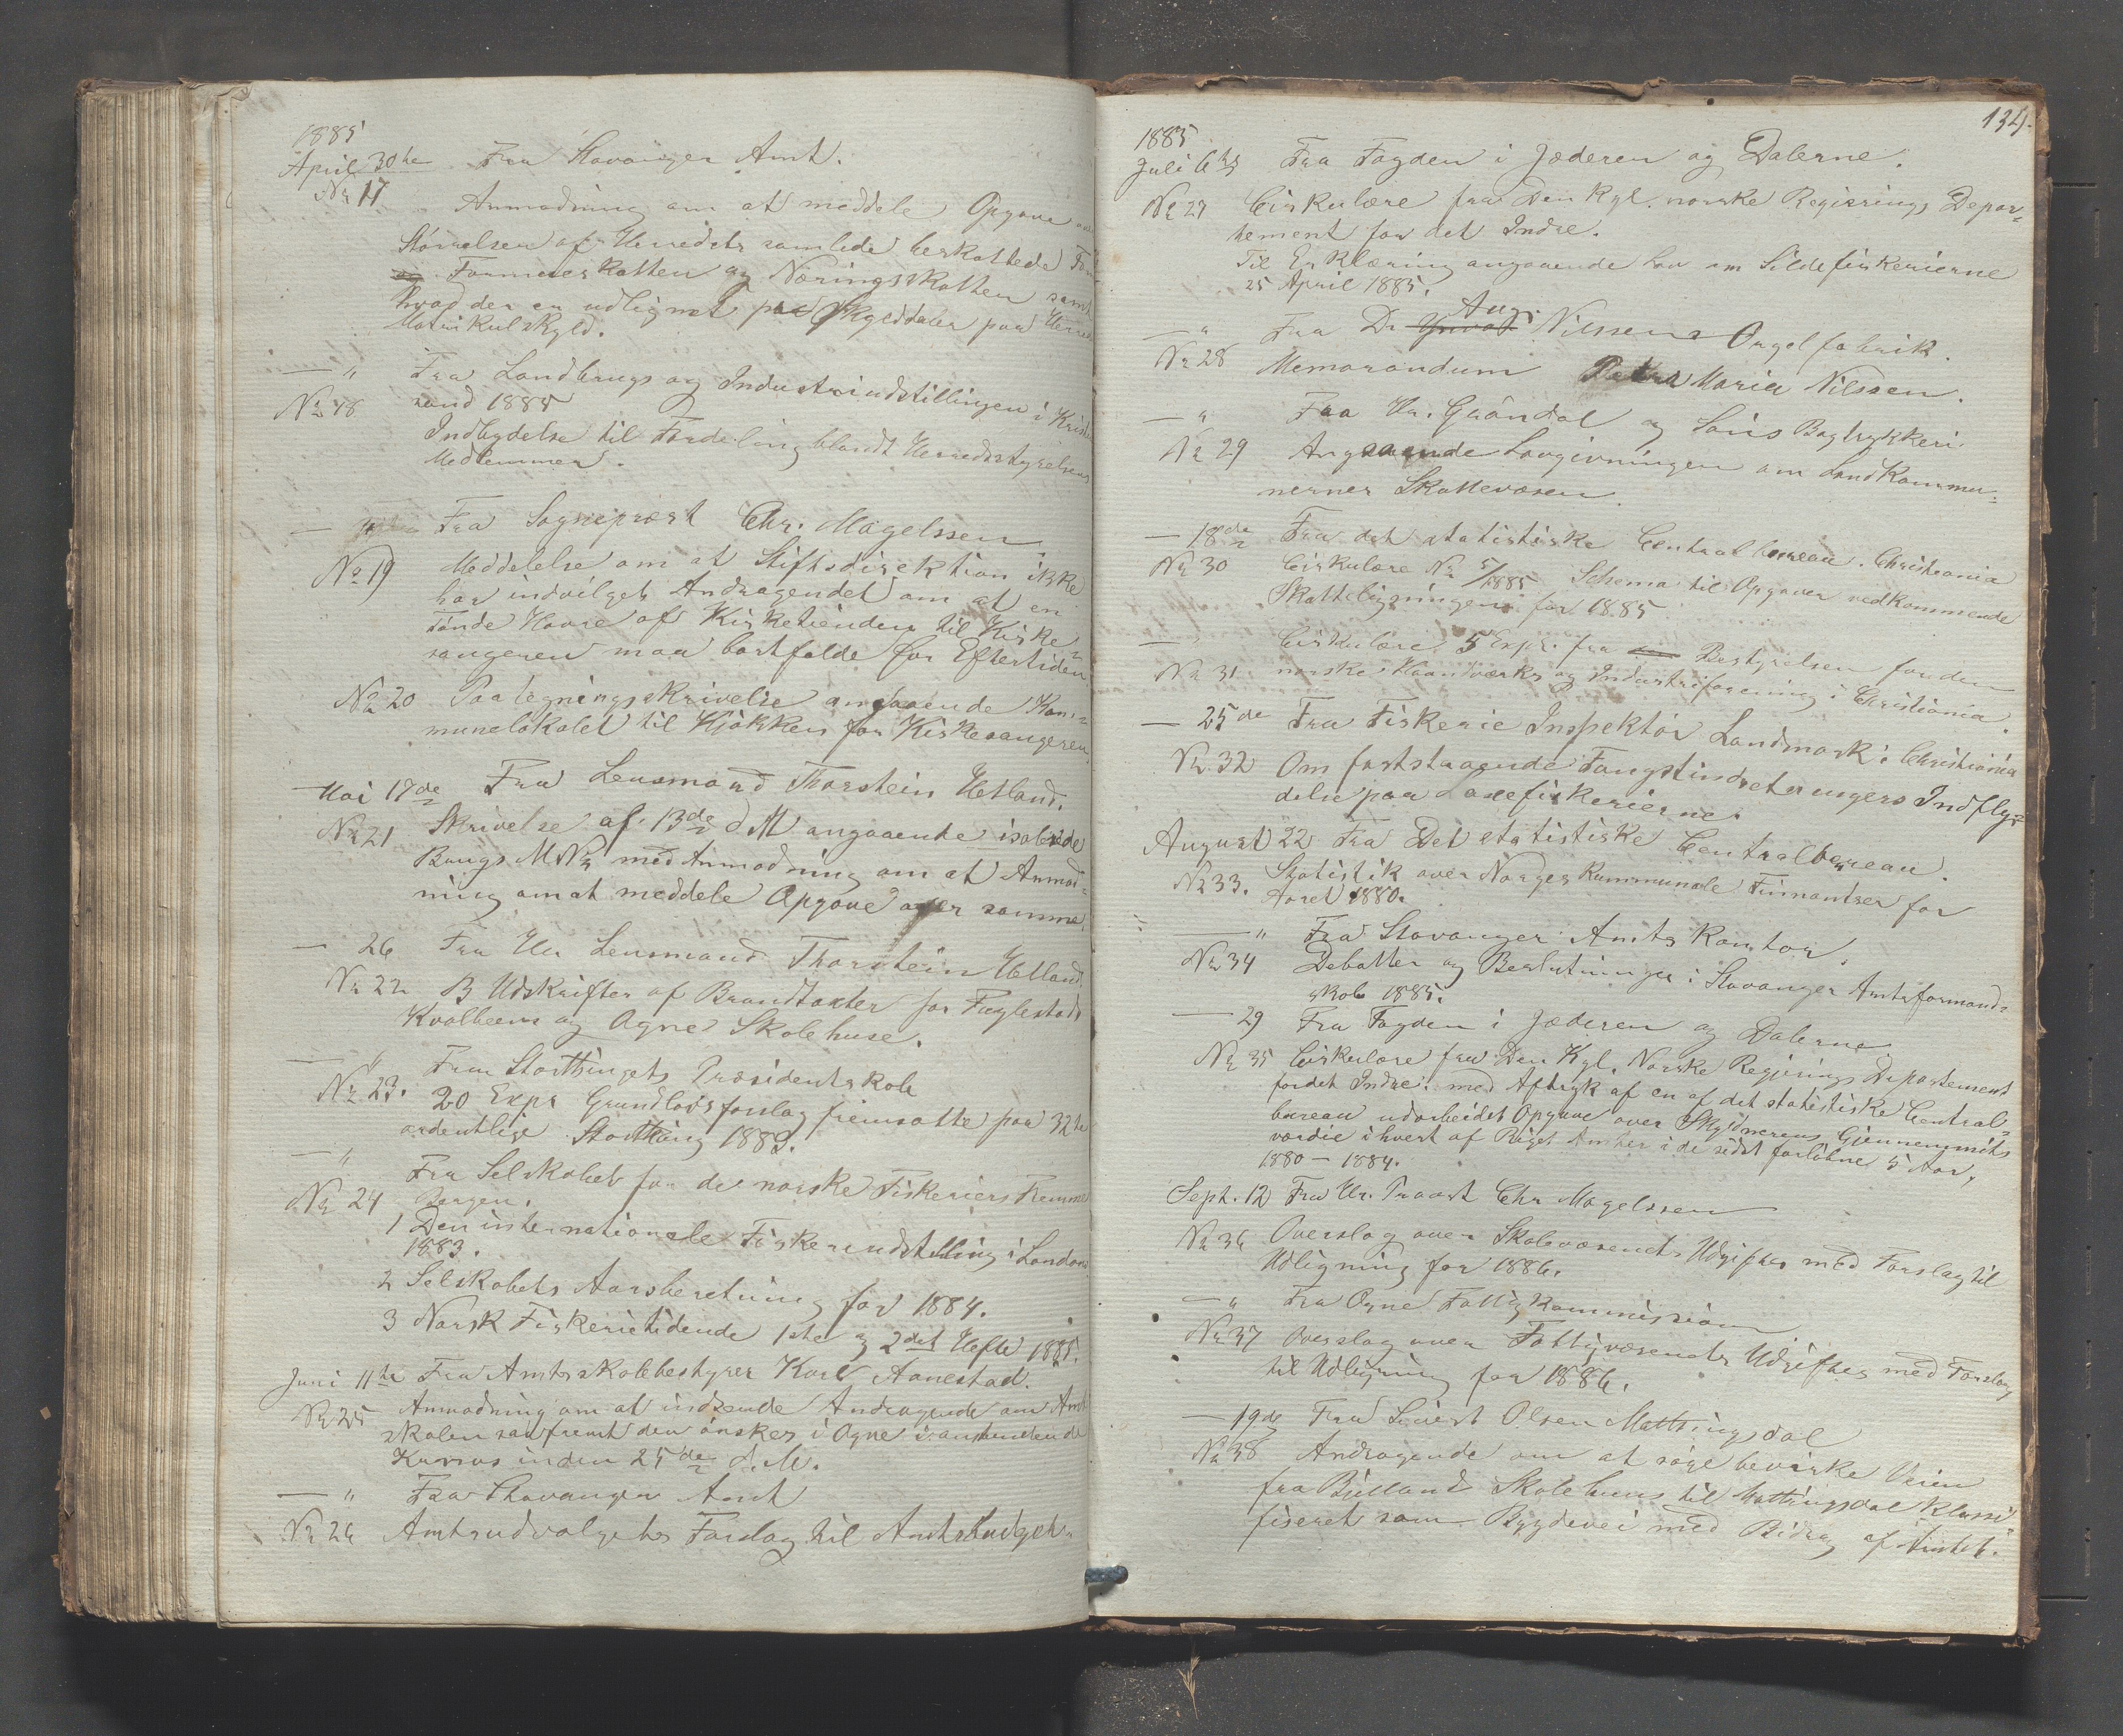 1885
April 30te Fra Stavanger Amt.
No 17
Anmodning om at meddele Opgave
Størrelsen af Herredets samlede beskattede
Formueskatten og Næringsskatten samt
hvad der er udlignet paa Skylddaler paa
Matrikulskyld.
— " Fra Landbrugs og Industriudstillingen i Kristian
No 18 sand 1885
Indbydelse til Fordeling blandt Herredsstyrelsens
Medlemmer.
— " Fra Sogneprest Chr. Magelssen.
No 19 Meddelelse om at Stiftsdirektion ikke
har indvilget Andragendet om at en
Tønde Havre af Kirketienden til Kirke-
sangeren maa bortfalde for Eftertiden.
No 20 Paategningsskrivelse angaaende Kom-
munelokalet til Kjøkken for Kirkesangeren.
Mai 17de Fra Lensmand Thorstein Hetland.
No 21 Skrivelse af 13de d M angaaende isolerede
Brugs M No med Anmodning om at Anmod-
ning om at meddele Opgave over samme.
— 26 Fra Hr Lensmand Thorstein Hetland
No 22 3 Udskrifter af Brandtaxter for Fuglestads
Kvalbeins og Ogne Skolehuse.
— " Fra Storthingets Præsidentskab
No 23. 20 Expr Grundlovsforslag fremsatte paa 32te
ordentlige Storthing 1883.
— " Fra Selskabet for de norske Fiskeriers Fremme
No 24 Bergen.
1 Den internationale Fiskeriudstilling i London
1883.
2 Selskabets Aarsberetning for 1884.
3 Norsk Fiskeritidende 1ste og 2det Hefte 1885.
Juni 11te Fra Amtsskolebestyrer Karl Aanestad.
No 25 Anmodning om at indsende Andragende om Amt
skolen saafremt den ønskes i Ogne i anstundende
Kursus inden 25de d. M.
— " Fra Stavanger Amt
No 26 Amtsudvalgets Forslag til Amtsbudget.
134.
1885
Juli 6te Fra Fogden i Jæderen og Dalerne.
No 27 Cirkulære fra Den Kgl. norske Regjerings Depar-
tement for det Indre.
Til Erklæring angaaende Lov om Sildefiskerierne
25 April 1885.
— " Fra Dr Aug. Nilssens Orgelfabrik.
No 28 Memorandum Petra Maria Nilssen.
— " Fra Hr. Grøndal og Søns Bogtrykkeri
No 29 Angaaende Lovgivningen om Landkommu-
nernes Skattevæsen
— 18de Fra det statistiske Centralbureau. Christiania
No 30 Cirkulære No 5/1885 Schema til Opgaver vedkommende
Skatteligningen for 1885
— " Cirkulære 5 Expr. fra Bestyrelsen for den
No 31 norske Haandværks og Industriforening i Christiania.
— 25de Fra Fiskerie Inspektør Landmark i Christiania
No 32 Om faststaaende Fangstindretningers Indfly-
delse paa Laxefiskerierne.
August 22 Fra Det statistiske Centralbureau.
No 33. Statistik over Norges Kommunale Finnantser for
Aaret 1880.
— " Fra Stavanger Amts Kontor.
No 34 Debatter og Beslutninger i Stavanger Amtsformand-
skab 1885.
— 29 Fra Fogden i Jæderen og Dalerne
No 35 Cirkulære fra Den Kgl. Norske Regjerings Departement
for det Indre. med Aftryk af en af det statistiske Central-
bureau udarbeidet Opgave over Skyldmarens Gjennemsnits
værdie i hvert af Riget Amter i de sidst forløbne 5 Aar,
1880 – 1884.
Sept. 12 Fra Hr. Provst Chr Magelssen
No 36 Overslag over Skolevæsenets Udgifter med Forslag til
Udligning for 1886.
— " Fra Ogne Fattigkommission
No 37 Overslag over Fattigvæsenets Udgifter med Forslag
til Udligning for 1886.
— 19de Fra Sivert Olsen Mattingsdal
No 38 Andragende om at søge bevirke Veien
fra Bjelland Skolehuus til Mattingsdal Klassi
fiseret som Bygdevei med Bidrag af Amtet.